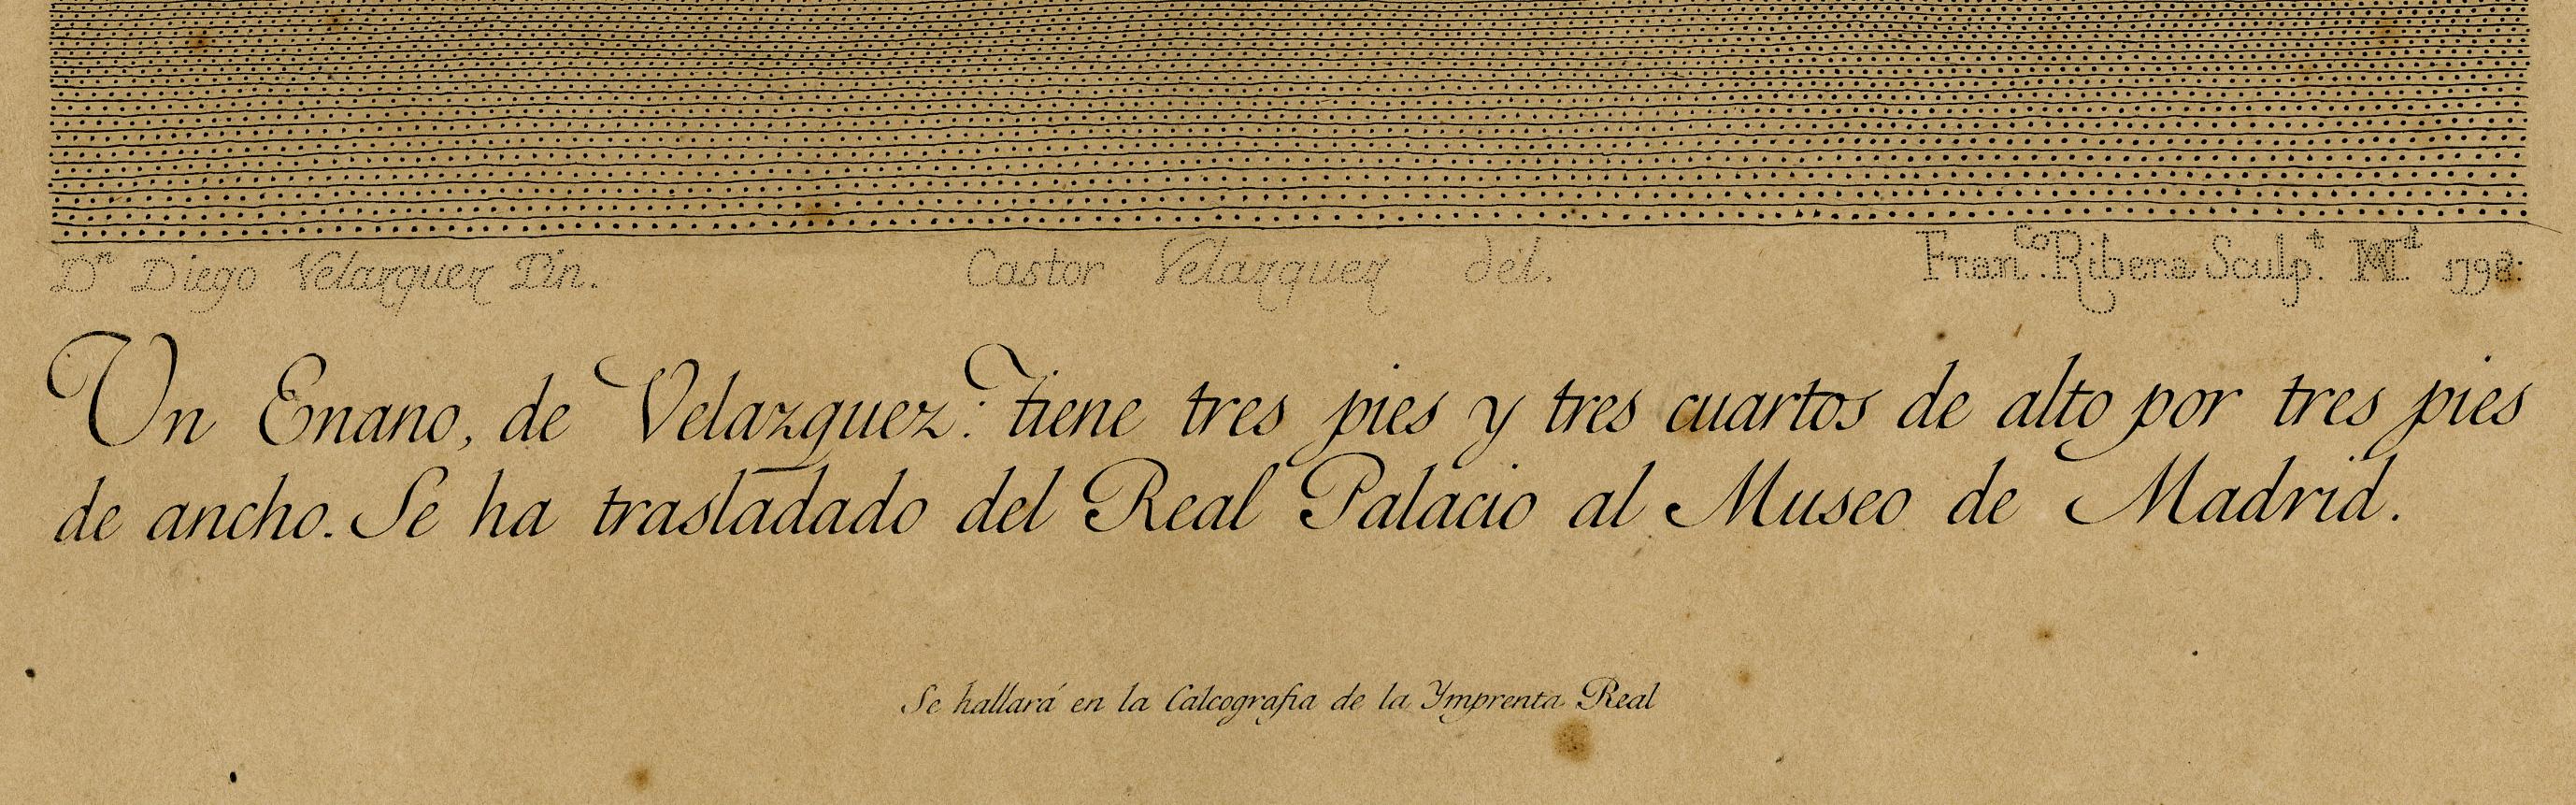 Dn Diego Velazquez Pin. Castor Velazquez del. Franco. Ribera Sculpt. Md. 1798:
Un Enano, de Velazquez: tiene tres pies y tres cuartos de alto por tres pies
de ancho. Se ha trasladado del Real Palacio al Museo de Madrid.
Se hallará en la Calcografia de la Ymprenta Real